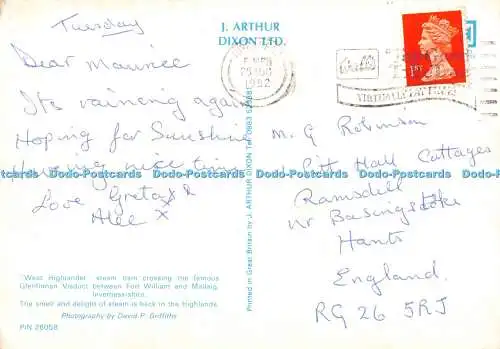 Tuesday
Dear Maurice
Its raining again
Hoping for Sunshine
Having nice time
Love Greta x &
Alec x
J. ARTHUR
DIXON LTD.
1992
1ST
M. G Robinson
Pit Hall Cottages
Ramsdell
Nr Basingstoke
Hants
England.
RG26 5RJ
"West Highlander" steam train crossing the famous
Glenfinnan Viaduct between Fort William and Mallaig,
Inverness-shire.
The smell and delight of steam is back in the Highlands.
Photography by David P. Griffiths
P/N 26058
Printed in Great Britain by J. ARTHUR DIXON Tel 0983 523381
Dodo-Postcards Dodo-Postcards Dodo-Postcards Dodo-Postcards